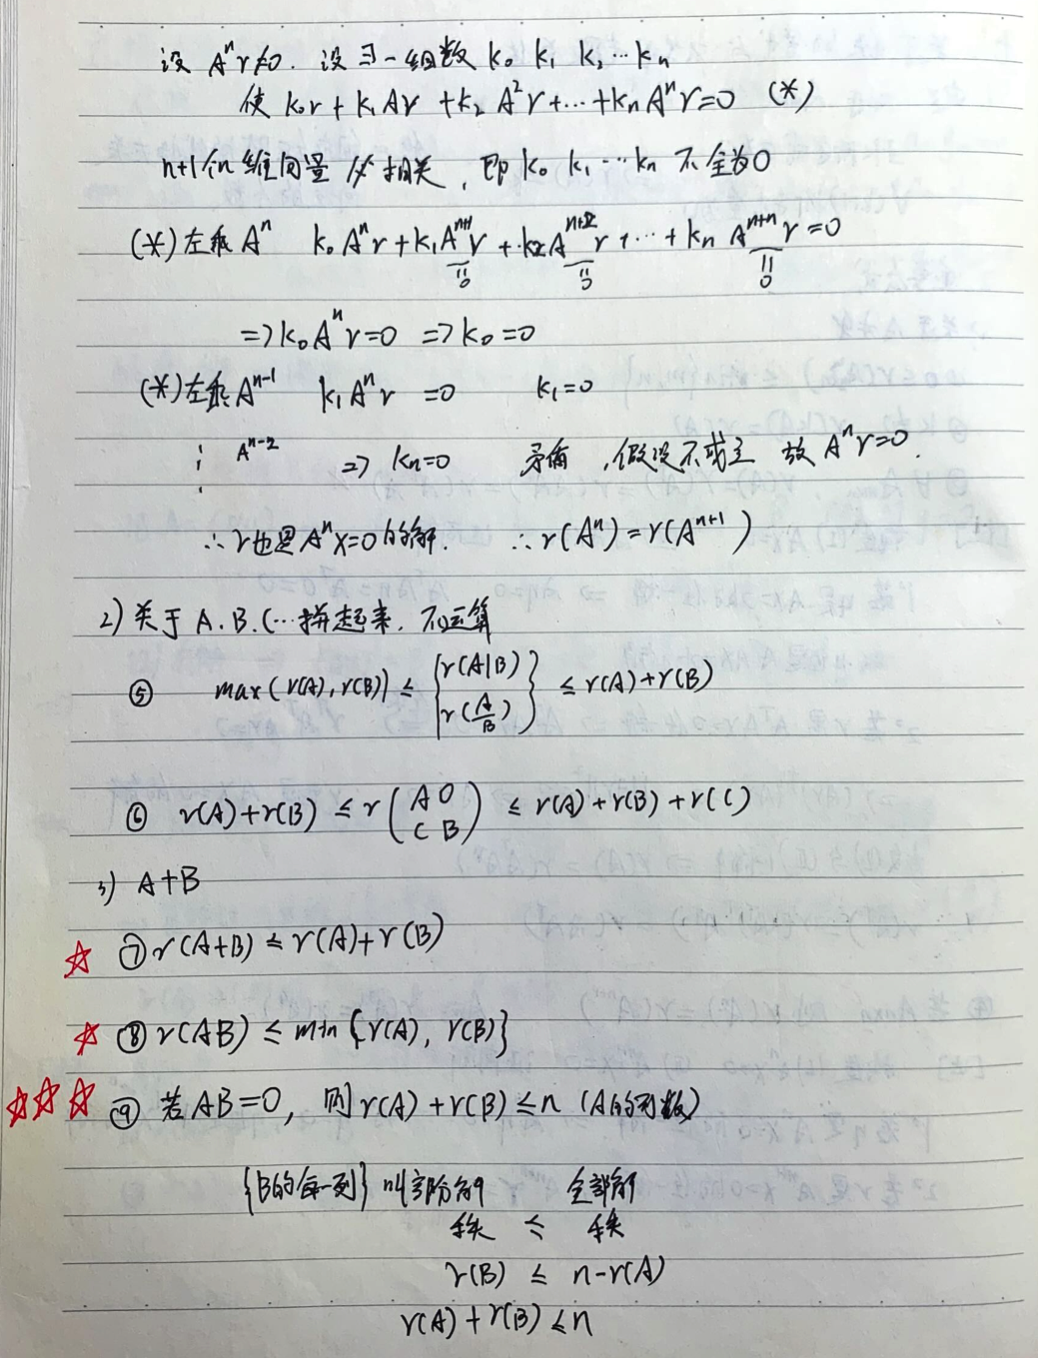 设 Aⁿr≠0. 设∃一组数 k₀ k₁ k₂ … kₙ
使 k₀r + k₁Ar + k₂A²r + … + kₙAⁿr = 0 (*)
n+1个n维向量必相关, 即 k₀ k₁ … kₙ 不全为0
(*)左乘 Aⁿ k₀Aⁿr + k₁Aⁿ⁺¹r + k₂Aⁿ⁺²r + … + kₙAⁿ⁺ⁿr = 0
= 0 = 0 = 0
=> k₀Aⁿr = 0 => k₀ = 0
(*)左乘 Aⁿ⁻¹ k₁Aⁿr = 0 k₁ = 0
⋮ Aⁿ⁻² => kₙ = 0 矛盾, 假设不成立 故 Aⁿr = 0.
∴ r也是 Aⁿx=0 的解. ∴ r(Aⁿ) = r(Aⁿ⁺¹)
2) 关于 A. B. C… 拼起来. 不运算
⑤ max{r(A), r(B)} ≤ { r(A|B) / r(A/B) } ≤ r(A)+r(B)
⑥ r(A)+r(B) ≤ r(A 0 / C B) ≤ r(A)+r(B)+r(C)
3) A+B
☆ ⑦ r(A+B) ≤ r(A)+r(B)
☆ ⑧ r(AB) ≤ min{r(A), r(B)}
☆☆☆ ⑨ 若AB=0, 则 r(A)+r(B) ≤ n (A的列数)
{B的每一列} 叫部分解 全部解
秩 ≤ 秩
r(B) ≤ n-r(A)
r(A)+r(B) ≤ n